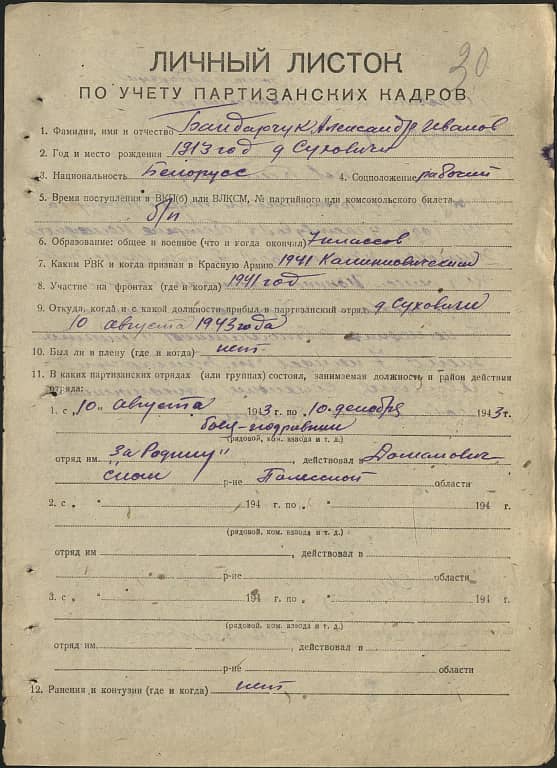 30
ЛИЧНЫЙ ЛИСТОК
ПО УЧЕТУ ПАРТИЗАНСКИХ КАДРОВ
1. Фамилия, имя и отчество Бандарчук Александр Иванов
2. Год и место рождения 1913 год д Суховичи
3. Национальность Белорусс 4. Соцположение рабочий
5. Время поступления в ВКП(б) или ВЛКСМ, № партийного или комсомольского билета
б/п
6. Образование: общее и военное (что и когда окончил) 7 классов
7. Каким РВК и когда призван в Красную Армию 1941 Калинковичский
8. Участие на фронтах (где и когда) 1941 год
9. Откуда, когда и с какой должности прибыл в партизанский отряд д Суховичи
10 августа 1943 года
10. Был ли в плену (где и когда) нет
11. В каких партизанских отрядах (или группах) состоял, занимаемая должность и район действия
отряда:
1. с „10„ августа 1943 г. по „10„ декабря 1943 г.
боец-подрывник
(рядовой, ком. взвода и т. д.)
отряд им За Родину" , действовал в Доманович
ском р-не Полесской области
2. с „ „ 194 г. по „ „ 194 г.
(рядовой, ком. взвода и т. д.)
отряд им , действовал в
р-не области
3. с „ „ 194 г. по „ „ 194 г.
(рядовой, ком. взвода и т. д.)
отряд им. , действовал в
р-не области
12. Ранения и контузии (где и когда) нет